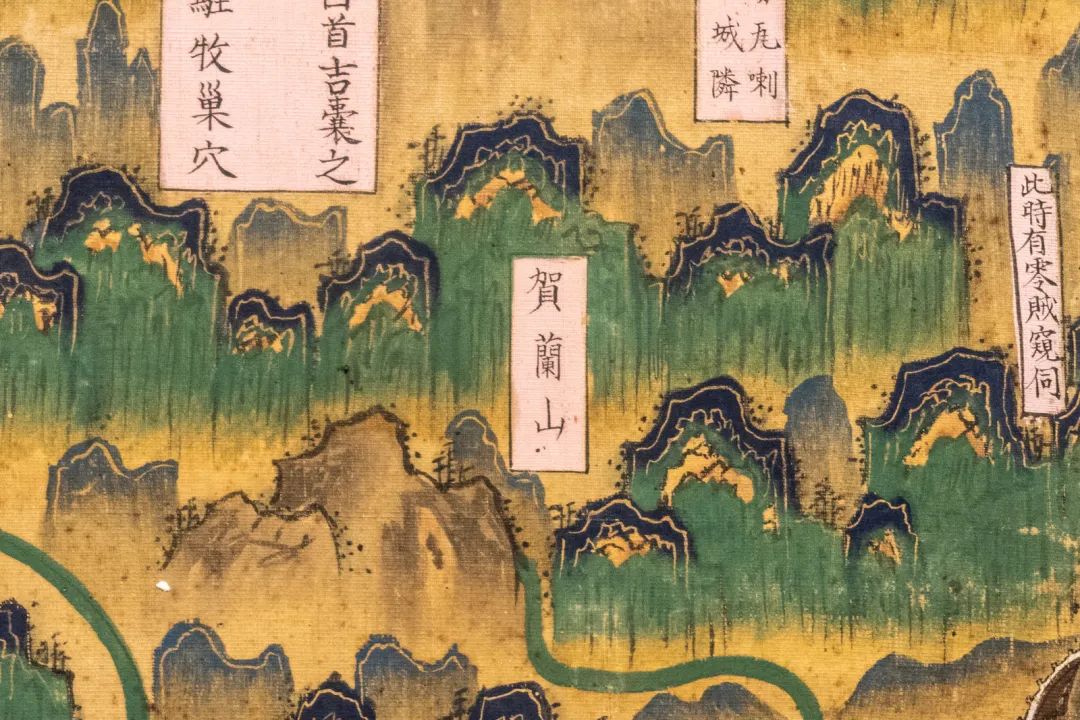 首吉囊之
駐牧巢穴
瓦喇
城隣
賀蘭山
此時有零賊窺伺